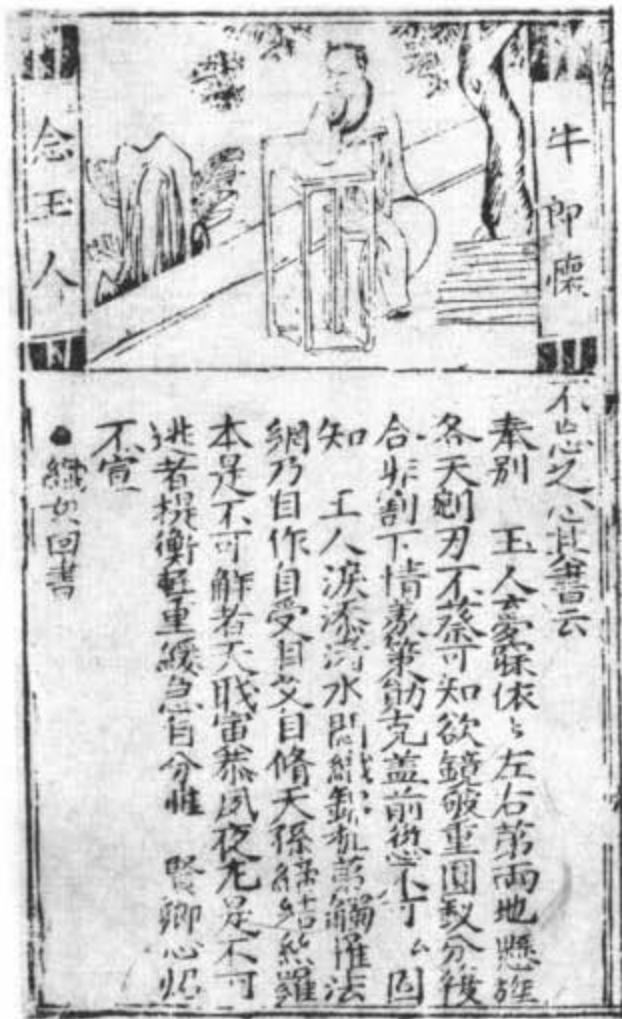 牛郎懷
念玉人
不忘之心其書云
奉別 玉人夢寐依〻左右第兩地懸旌
各天剜刃不蔡可知欲鏡破重圓釵分復
合非割下情策勛克蓋前愆不可 因
知 玉人淚添河水悶織 机 觸罹法
網乃自作自受自艾自脩天孫 結絲羅
本是不可解者天 寅恭夙夜尤是不可
逃者提衡輕重緩急自分惟 賢卿心炤
不宣
●織女回書